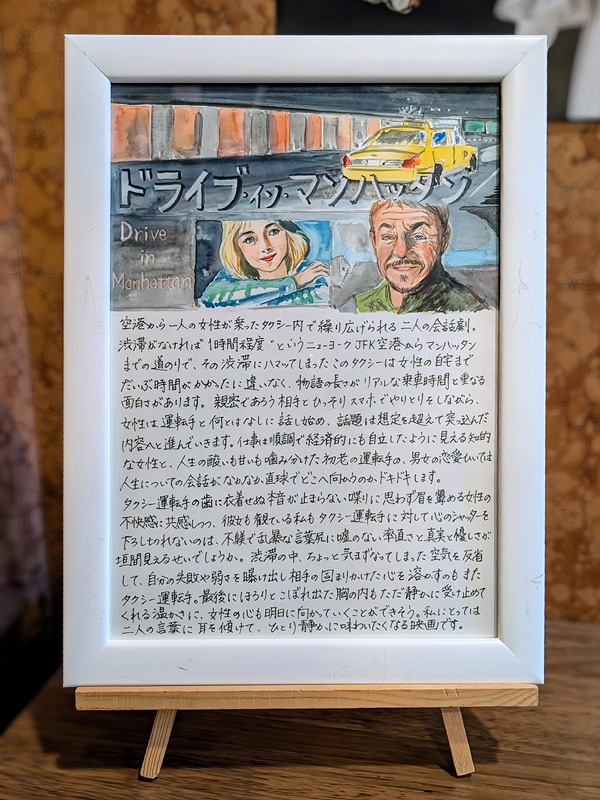 ドライブ・イン・マンハッタン
Drive
in
Manhattan
空港から一人の女性が乗ったタクシー内で繰り広げられる二人の会話劇。
渋滞がなければ"1時間程度"というニューヨークJFK空港からマンハッタン
までの道のりで、その渋滞にハマってしまったこのタクシーは女性の自宅まで
だいぶ時間がかかったに違いなく、物語の長さがリアルな乗車時間と重なる
面白さがあります。親密であろう相手とひっそりスマホでやりとりをしながら、
女性は運転手と何とはなしに話し始め、話題は想定を超えて突っ込んだ
内容へと進んでいきます。仕事は順調で経済的にも自立したように見える知的
な女性と、人生の酸いも甘いも噛み分けた初老の運転手の、男女の恋愛ひいては
人生についての会話がなかなか直球でどこへ向かうのかドキドキします。
タクシー運転手の歯に衣着せぬ本音が止まらない喋りに思わず眉を顰める女性の
不快感に共感しつつ、彼女も観ている私もタクシー運転手に対して心のシャッターを
下ろしきれないのは、不躾で乱暴な言葉尻に嘘のない率直さと真実と優しさが
垣間見えるせいでしょうか。渋滞の中、ちょっと気まずくなってしまった空気を反省
して、自分の失敗や弱さを曝け出し相手の固まりかけた心を溶かすのもまた
タクシー運転手。最後にほろりとこぼれ出た胸の内もただ静かに受け止めて
くれる温かさに、女性の心も明日に向かっていくことができそう。私にとっては
二人の言葉に耳を傾けて、ひとり静かに味わいたくなる映画です。